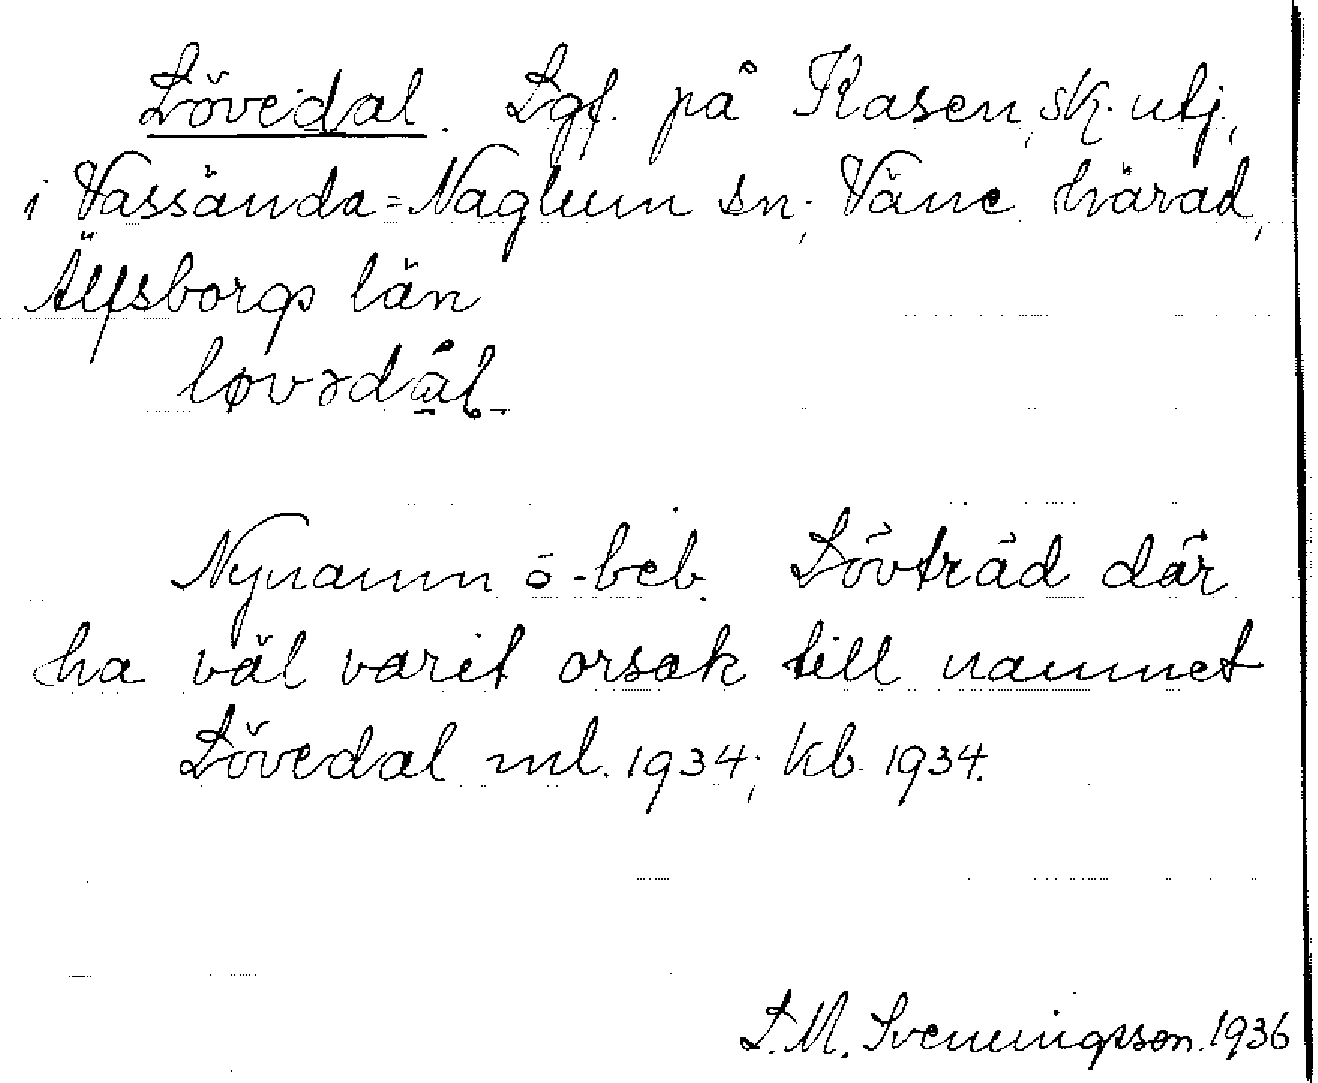 Lövedal. Lgf. på Kasen, sk. utj.,
i Vassända=Naglum sn; Väne härad,
Älfsborgs län
løvədàl
Nynamn å beb. Lövträd där
ha väl varit orsak till namnet
Lövedal ml. 1934; kb 1934.
L. M. Svenungsson. 1936